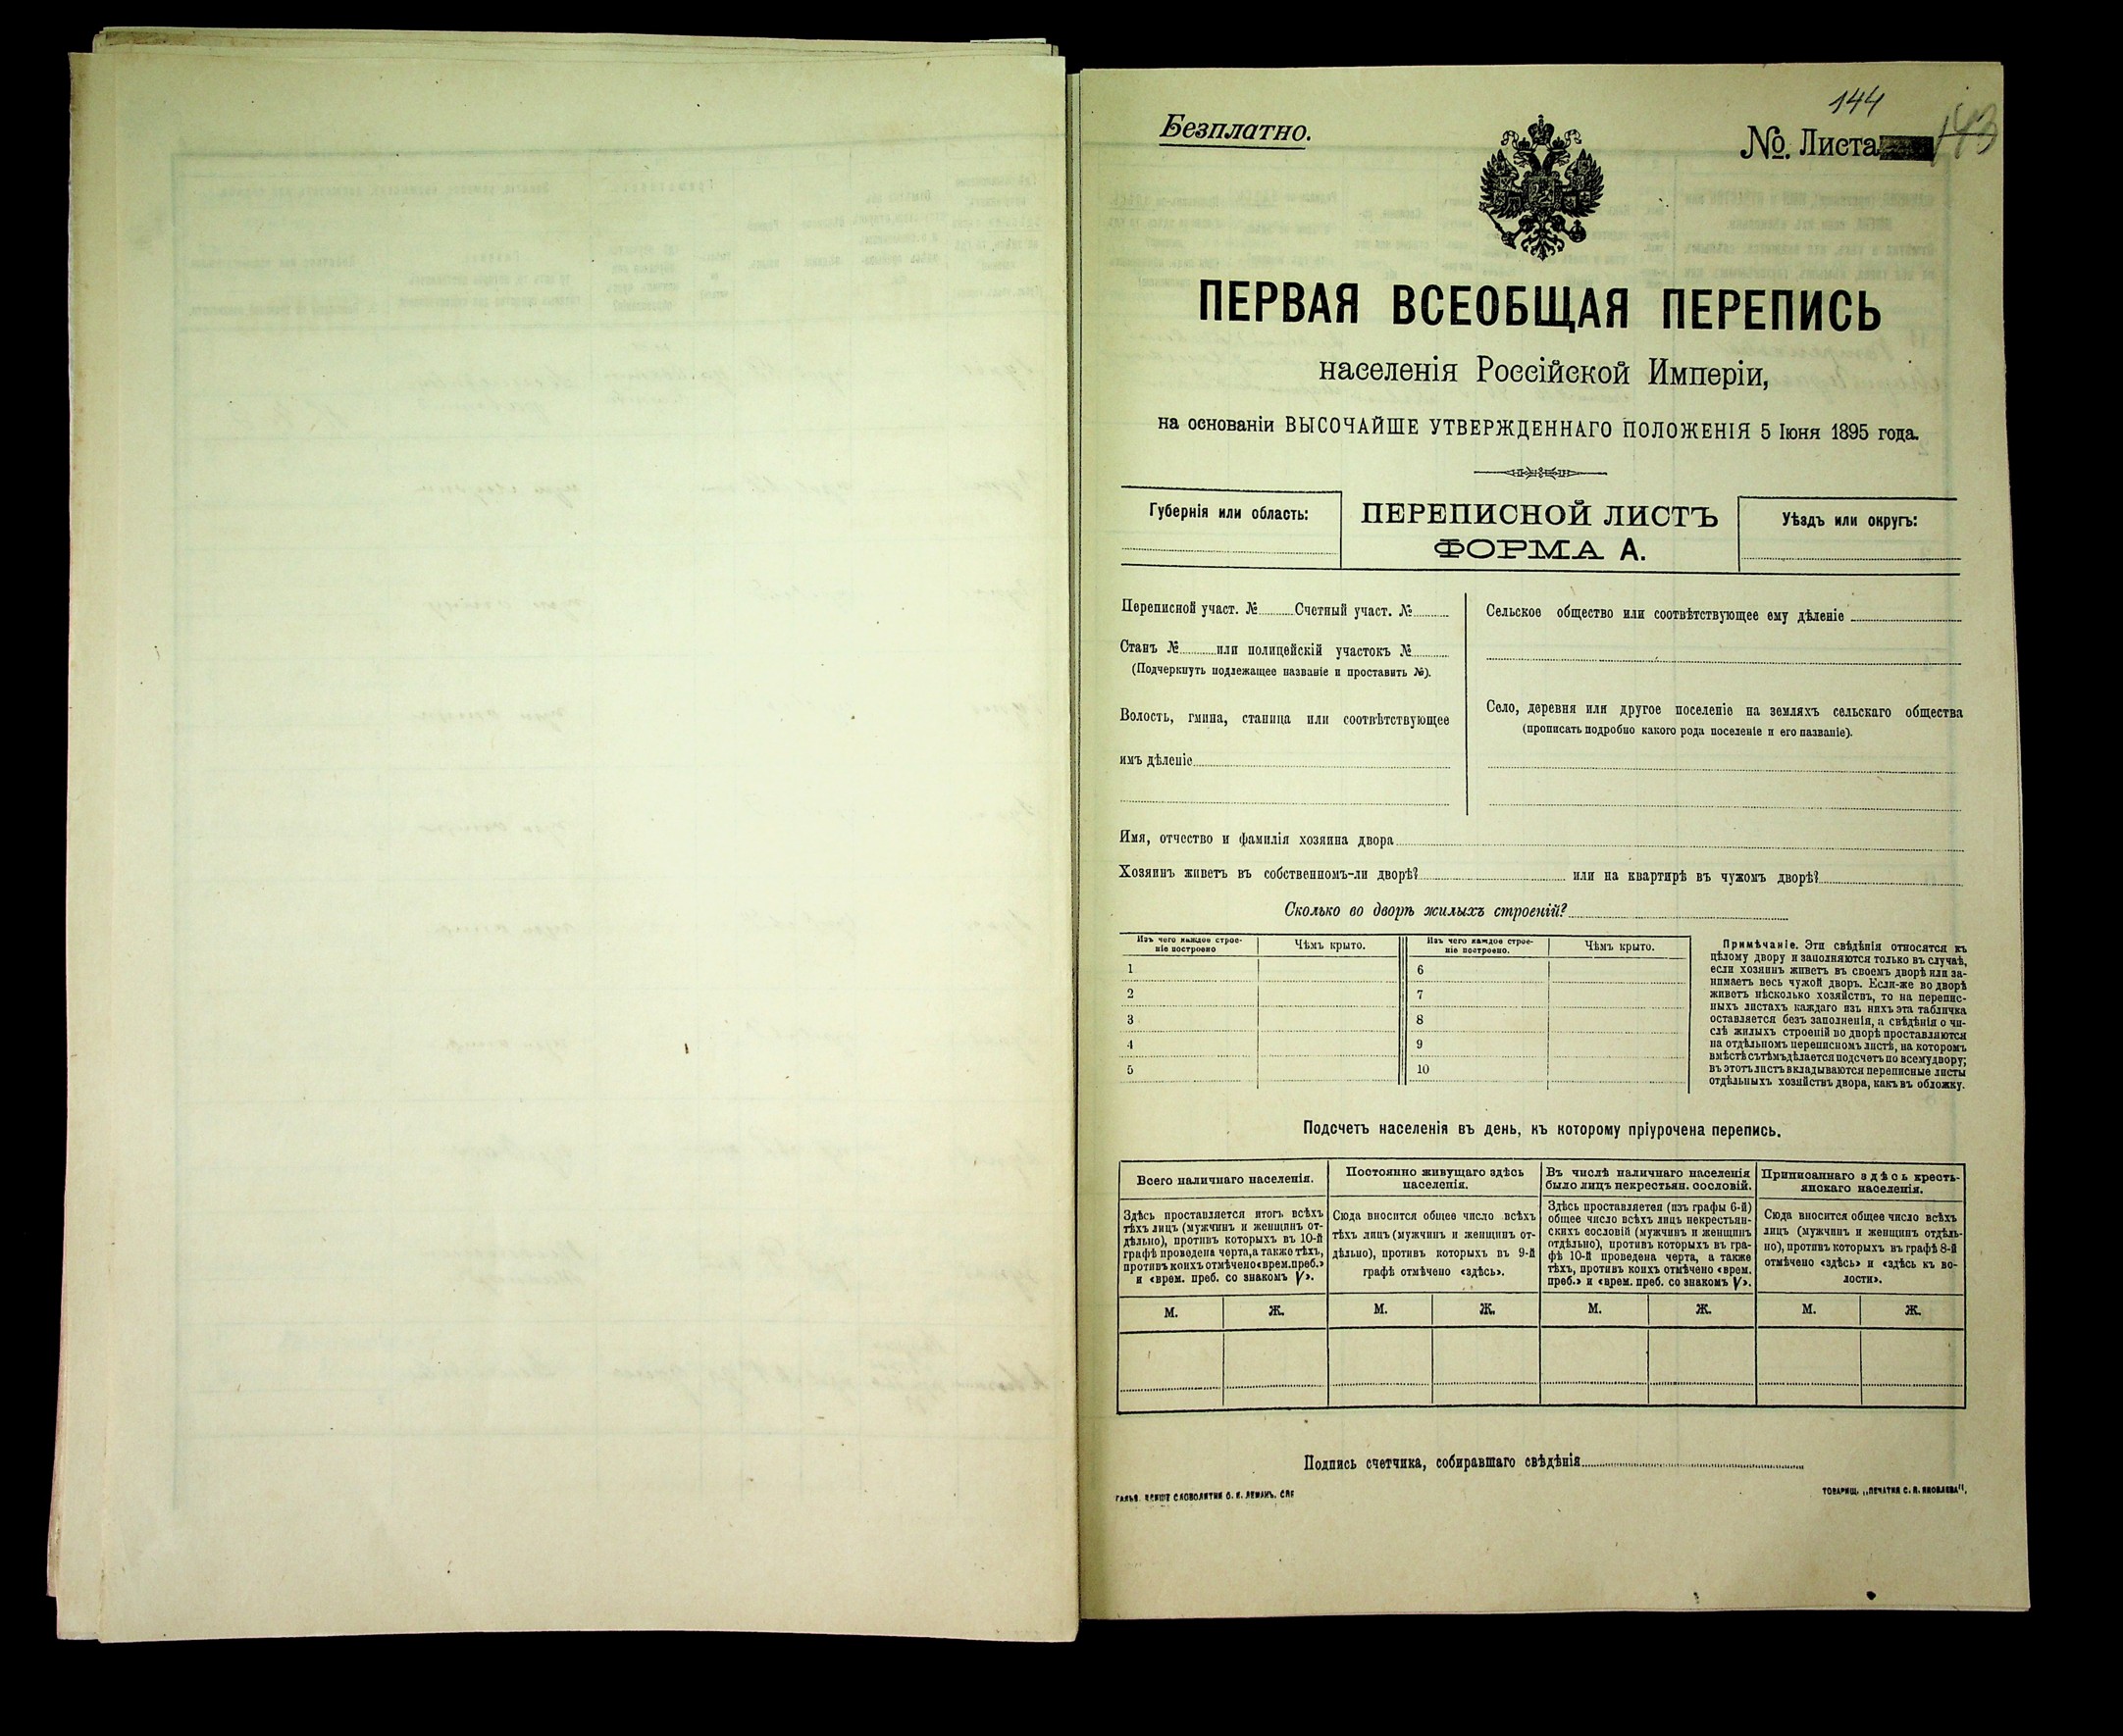 144
Безплатно.
№. Листа 143
ПЕРВАЯ ВСЕОБЩАЯ ПЕРЕПИСЬ
населенія Россійской Имперіи,
на основаніи ВЫСОЧАЙШЕ УТВЕРЖДЕННАГО ПОЛОЖЕНІЯ 5 Іюня 1895 года.
Губернія или область:
ПЕРЕПИСНОЙ ЛИСТЪ
ФОРМА А.
Уѣздъ или округъ:
Переписной участ. № Счетный участ. №
Станъ № или полицейскій участокъ №
(Подчеркнуть подлежащее названіе и проставить №).
Волость, гмина, станица или соотвѣтствующее
имъ дѣленіе
Сельское общество или соотвѣтствующее ему дѣленіе
Село, деревня или другое поселеніе на земляхъ сельскаго общества
(прописать подробно какого рода поселеніе и его названіе).
Имя, отчество и фамилія хозяина двора
Хозяинъ живетъ въ собственномъ-ли дворѣ? или на квартирѣ въ чужомъ дворѣ?
Сколько во дворѣ жилыхъ строеній?
Изъ чего каждое строе-
ніе построено
Чѣмъ крыто.
Изъ чего каждое строе-
ніе построено.
Чѣмъ крыто.
1 6
2 7
3 8
4 9
5 10
Примѣчаніе. Эти свѣдѣнія относятся къ
цѣлому двору и заполняются только въ случаѣ,
если хозяинъ живетъ въ своемъ дворѣ или за-
нимаетъ весь чужой дворъ. Если-же во дворѣ
живетъ нѣсколько хозяйствъ, то на перепис-
ныхъ листахъ каждаго изъ нихъ эта табличка
оставляется безъ заполненія, а свѣдѣнія о чи-
слѣ жилыхъ строеній во дворѣ проставляются
на отдѣльномъ переписномъ листѣ, на которомъ
вмѣстѣ съ тѣмъ дѣлается подсчетъ по всему двору;
въ этотъ листъ вкладываются переписные листы
отдѣльныхъ хозяйствъ двора, какъ въ обложку.
Подсчетъ населенія въ день, къ которому пріурочена перепись.
Всего наличнаго населенія.
Здѣсь проставляется итогъ всѣхъ
тѣхъ лицъ (мужчинъ и женщинъ от-
дѣльно), противъ которыхъ въ 10-й
графѣ проведена черта, а также тѣхъ,
противъ коихъ отмѣчено «врем. преб.»
и «врем. преб. со знакомъ V».
М. Ж.
Постоянно живущаго здѣсь
населенія.
Сюда вносится общее число всѣхъ
тѣхъ лицъ (мужчинъ и женщинъ от-
дѣльно), противъ которыхъ въ 9-й
графѣ отмѣчено «здѣсь».
М. Ж.
Въ числѣ наличнаго населенія
было лицъ некрестьян. сословій.
Здѣсь проставляется (изъ графы 6-й)
общее число всѣхъ лицъ некрестьян-
скихъ сословій (мужчинъ и женщинъ
отдѣльно), противъ которыхъ въ гра-
фѣ 10-й проведена черта, а также
тѣхъ, противъ коихъ отмѣчено «врем.
преб.» и «врем. преб. со знакомъ V».
М. Ж.
Приписаннаго здѣсь кресть-
янскаго населенія.
Сюда вносится общее число всѣхъ
лицъ (мужчинъ и женщинъ отдѣль-
но), противъ которыхъ въ графѣ 8-й
отмѣчено «здѣсь» и «здѣсь къ во-
лости».
М. Ж.
Подпись счетчика, собиравшаго свѣдѣнія
СЛОВОЛИТНИ О. И. ЛЕМАНЪ. СПБ
ТОВАРИЩ. „ПЕЧАТНЯ С. П. ЯКОВЛЕВА".